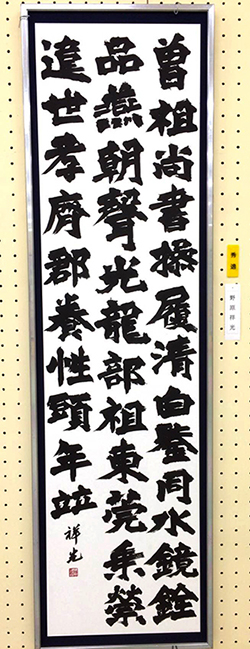 曾祖尚書操履清白鑒同水鏡銓
品燕朝聲光龍部祖東莞乗榮
達世考齊郡養性頤年竝
祥光
秀逸
野原祥光